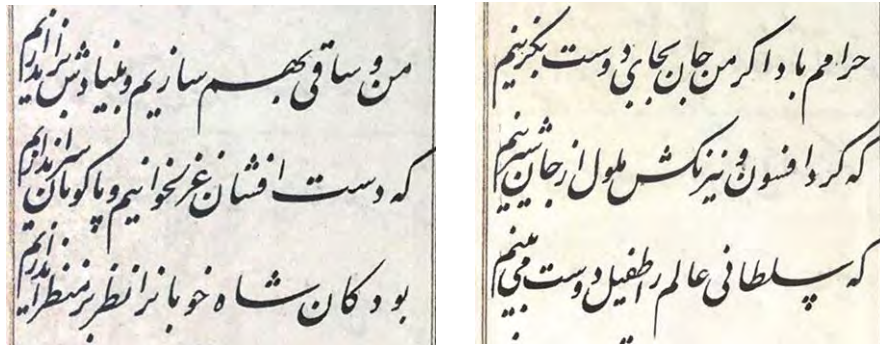 حرامم باد اگر من جان بجای دوست بگزینم
که کرد افسون و نیرنگش ملول از جان شیرینم
که سلطانی عالم را طفیل دوست می بینم
من و ساقی بهم سازیم و بنیادش براندازیم
که دست افشان غزلخوانیم و پاکوبان سر اندازیم
بود کان شاه خوبانرا نظر بر منظر اندازیم